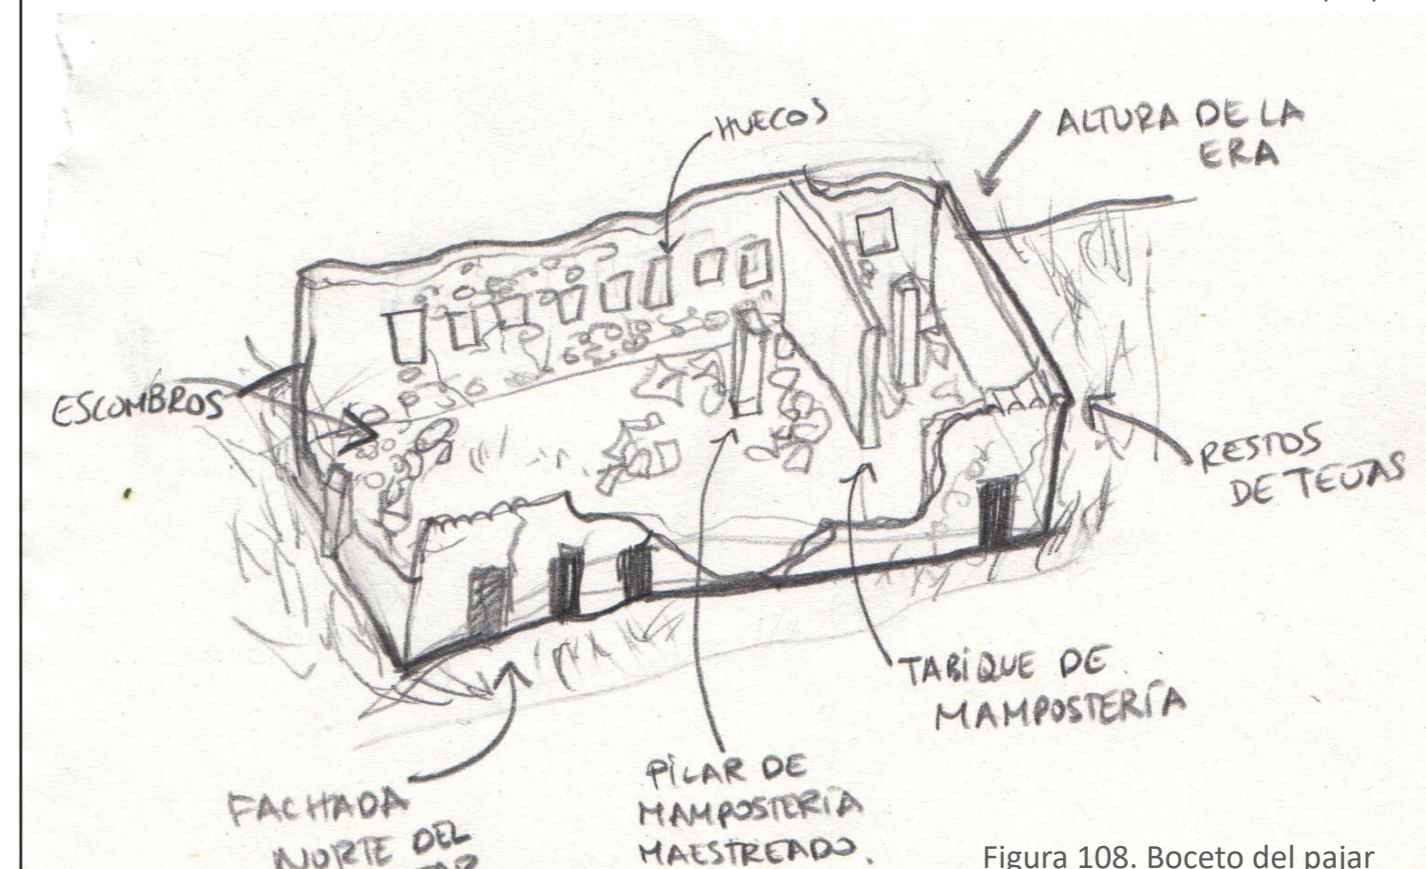 HUECOS
ALTURA DE LA
ERA
ESCOMBROS
RESTOS
DE TEJAS
TABIQUE DE
MAMPOSTERÍA
PILAR DE
MAMPOSTERÍA
MAESTREADO.
FACHADA
NORTE DEL
Figura 108. Boceto del pajar